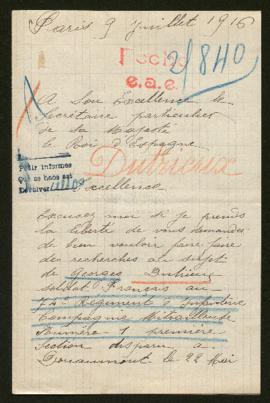 Paris 9 Juillet 1916
Fecha
e.a.e.
2/8 HO
A Son Excellence le
Secrétaire particulier
de Sa Majesté
le Roi d'Espagne
Dutrieux
Pedir informes
que se hace así
Devolver
Excellence
Excusez moi si je prends
la liberté de vous demander
de bien vouloir faire faire
des recherches au sujet
de Georges Dutrieux
soldat Français au
74e Régiment d'Infanterie
Compagnie Mitrailleuse
Numéro 1 première
Section disparu a
Douaumont le 22 Mai